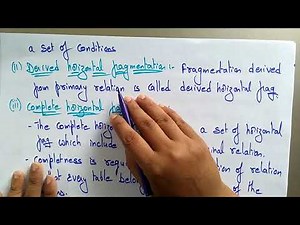 a set of conditions
(ii) Derived horizontal fragmentation :- Fragmentation derived
from primary relation is called derived horizontal frag.
(iii) Complete horizontal
- The complete horizo a set of horizontal
frag which include inal relation.
- completeness is requ tion of relation
every table belong of the